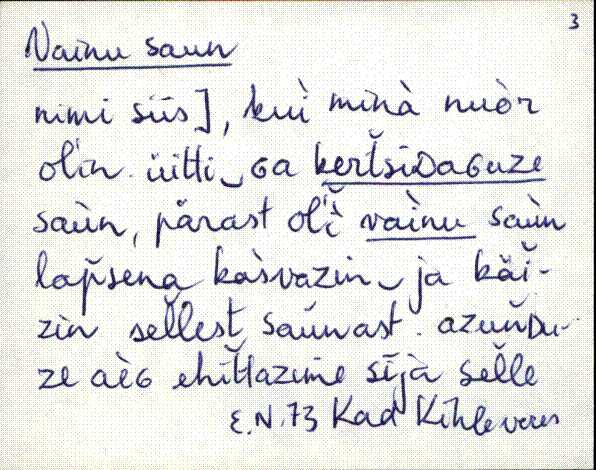 3
Vainu saun
nimi siis], kui̇̀ minà nuòr
olin. üitti‿ɢa kerťsiᴅaɢuze
saùn, pärast olì vaìnu saùn
lapsena kàsvazin‿ja käi-
zin sellest saúnast. azunᴅu-
ze aèɢ ehittazime sījà selle
E.N. 73 Kad Kihlevere